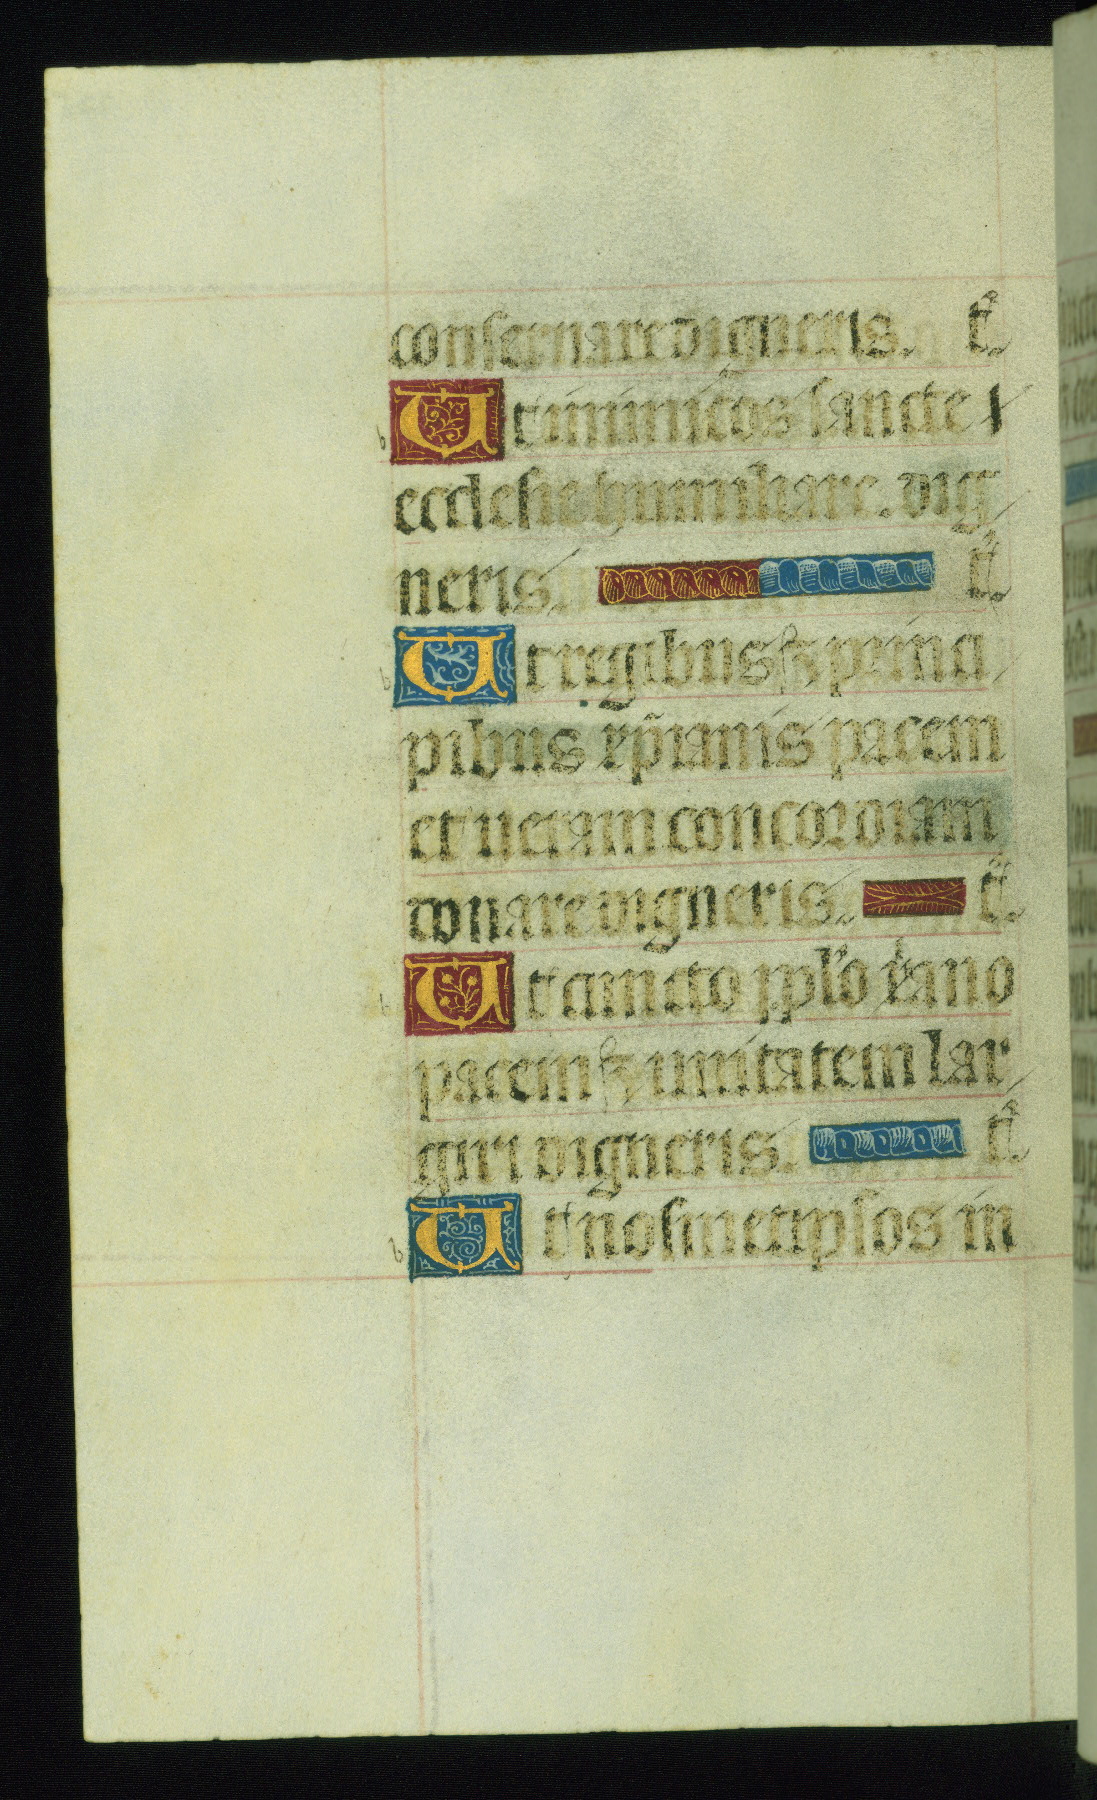 conseruare digneris. T̃.
Ut inimicos sancte
ecclesie humiliare. dig
neris. T̃.
Ut regibus ⁊ princi
pibus xp̃ianis pacem
et ueram concordiam
donare digneris. T̃.
Ut cuncto pplo xp̃iano
pacem ⁊ unitatem lar
giri digneris. T̃.
Ut nosmetipsos in